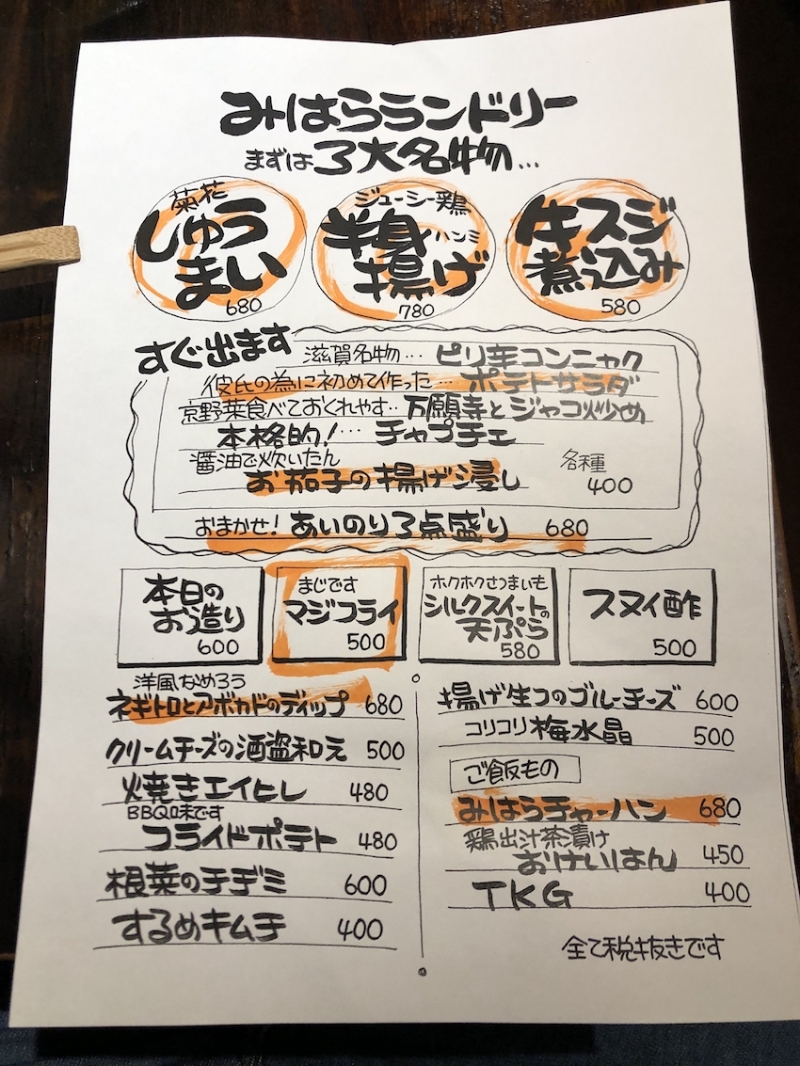 みはらランドリー
まずは3大名物…
菊花
しゅうまい
680
ジューシー鶏
半身ハンミ
揚げ
780
牛スジ
煮込み
580
すぐ出ます
滋賀名物… ピリ辛コンニャク
彼氏の為に初めて作った… ポテトサラダ
京野菜食べておくれやす… 万願寺とジャコ炒め
本格的!… チャプチェ
醤油で炊いたん
お茄子の揚げ浸し
各種
400
おまかせ! あいのり3点盛り 680
本日の
お造り
600
まじです
マジフライ
500
ホクホクさつまいも
シルクスイートの
天ぷら
580
スヌイ酢
500
洋風なめろう
ネギトロとアボカドのディップ 680
クリームチーズの酒盗和え 500
焼きエイヒレ 480
BBQ味です
フライドポテト 480
根菜のチヂミ 600
するめキムチ 400
揚げ生フのブルーチーズ 600
コリコリ梅水晶 500
ご飯もの
みはらチャーハン 680
鶏出汁茶漬け
おけいはん 450
TKG 400
全て税抜きです